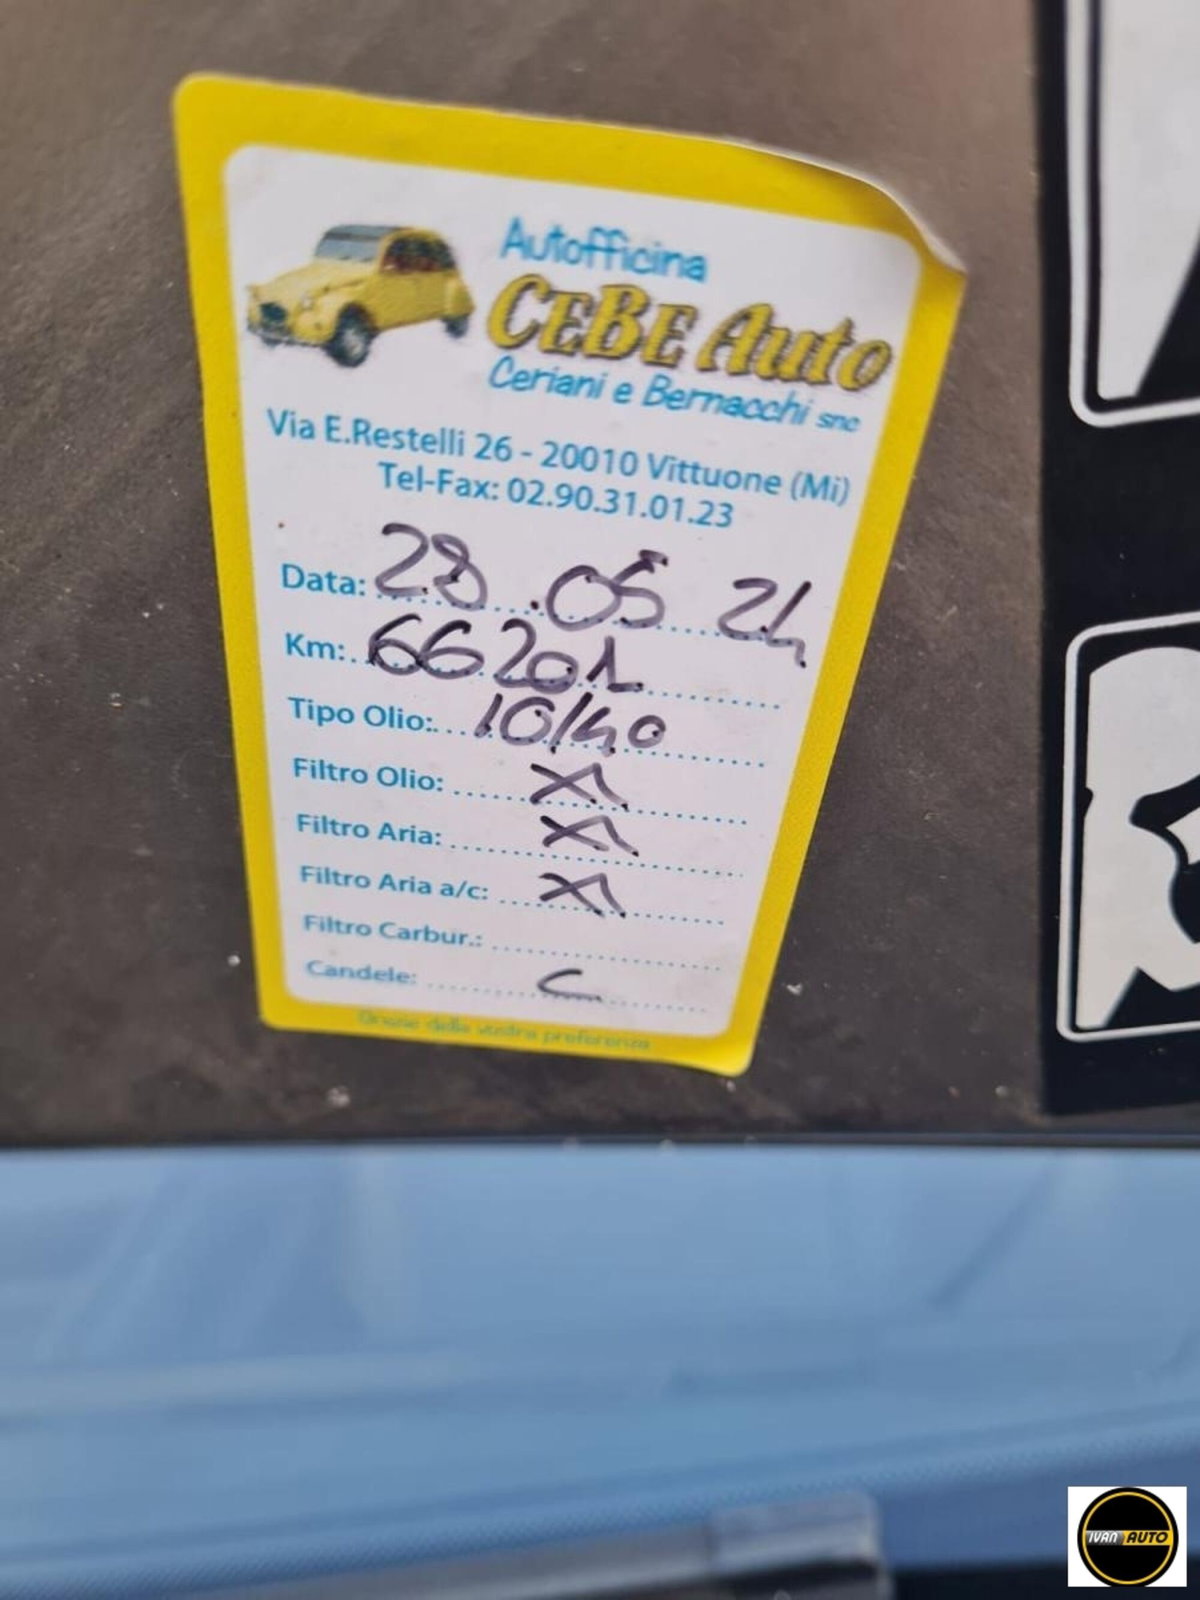 Autofficina
CEBE Auto
Ceriani e Bernacchi snc
Via E.Restelli 26 - 20010 Vittuone (Mi)
Tel-Fax: 02.90.31.01.23
Data: 28.05 24
Km: 66201
Tipo Olio: 10/40
Filtro Olio: X
Filtro Aria: X
Filtro Aria a/c: X
Filtro Carbur.:
Candele:
della vostra preferenza
IVAN AUTO